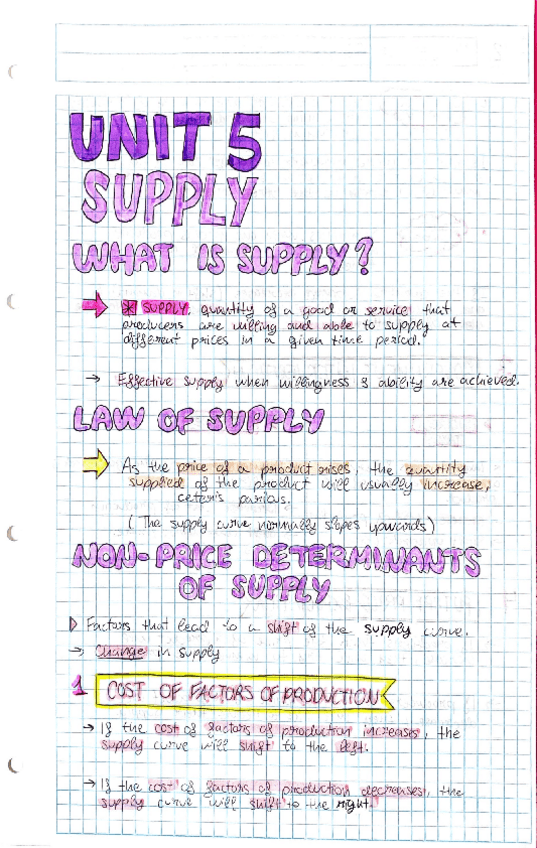 UNIT 5
SUPPLY
WHAT IS SUPPLY?
* SUPPLY: quantity of a good or service that
producers are willing and able to supply at
different prices in a given time period.
→ Effective supply when willingness & ability are achieved.
LAW OF SUPPLY
As the price of a product rises, the quantity
supplied of the product will usually increase,
ceteris paribus.
(The supply curve normally slopes upwards)
NON-PRICE DETERMINANTS
OF SUPPLY
Factors that lead to a shift of the supply curve.
→ Change in supply
1 COST OF FACTORS OF PRODUCTION
→ If the cost of factors of production increases, the
supply curve will shift to the left.
→ If the cost of factors of production decreases, the
supply curve will shift to the right.